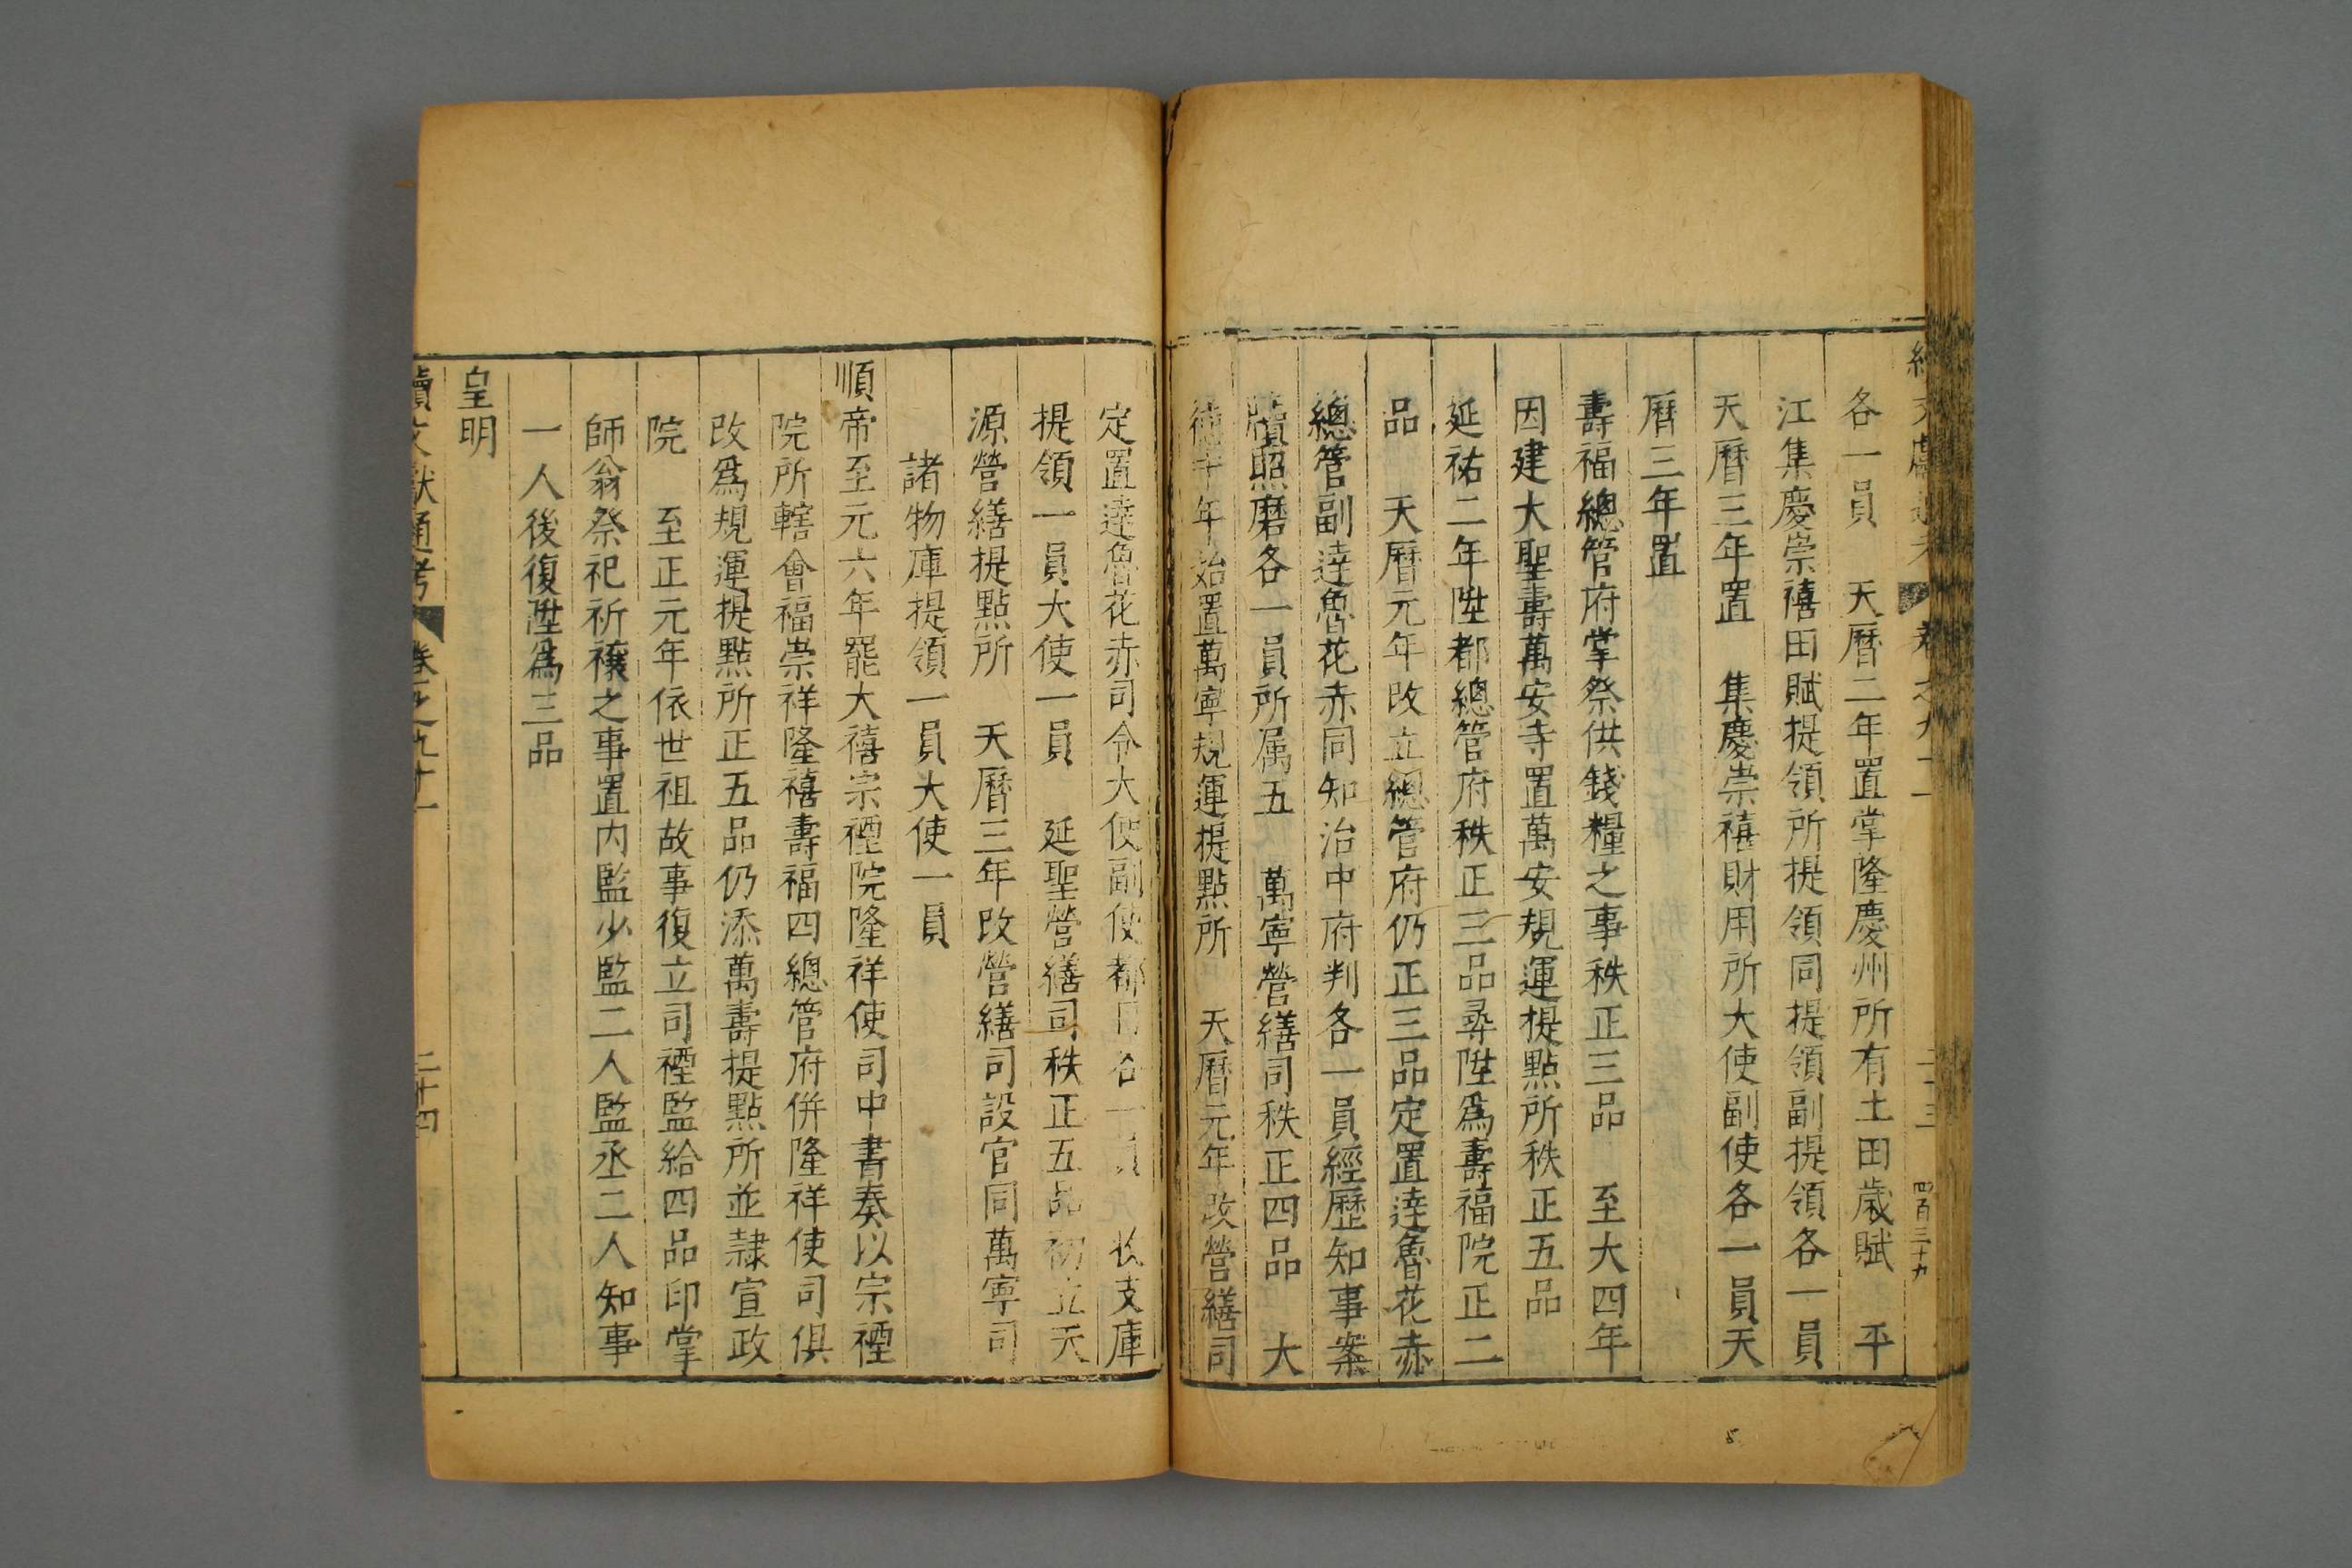 各一員　天曆二年置掌隆慶州所有土田歲賦　平
江集慶崇禧田賦提領所提領同提領副提領各一員
天曆三年置　集慶崇禧財用所大使副使各一員天
曆三年置
壽福總管府掌祭供錢糧之事秩正三品　至大四年
因建大聖壽萬安寺置萬安規運提點所秩正五品
延祐二年陞都總管府秩正三品尋陞爲壽福院正二
品　天曆元年改立總管府仍正三品定置達魯花赤
總管副達魯花赤同知治中府判各一員經歷知事案
牘照磨各一員所属五　萬寧營繕司秩正四品　大
德十年始置萬寧規運提點所　天曆元年改營繕司
定置達魯花赤司令大使副使都目各一員　收支庫
提領一員大使一員　延聖營繕司秩正五品初立天
源營繕提點所　天曆三年改營繕司設官同萬寧司
諸物庫提領一員大使一員
順帝至元六年罷大禧宗禋院隆祥使司中書奏以宗禋
院所轄會福崇祥隆禧壽福四總管府併隆祥使司俱
改爲規運提點所正五品仍添萬壽提點所並隷宣政
院　至正元年依世祖故事復立司禋監給四品印掌
師翁祭祀祈禳之事置内監少監二人監丞二人知事
一人後復陞爲三品
皇明
續文獻通考　卷之九十一　二十四